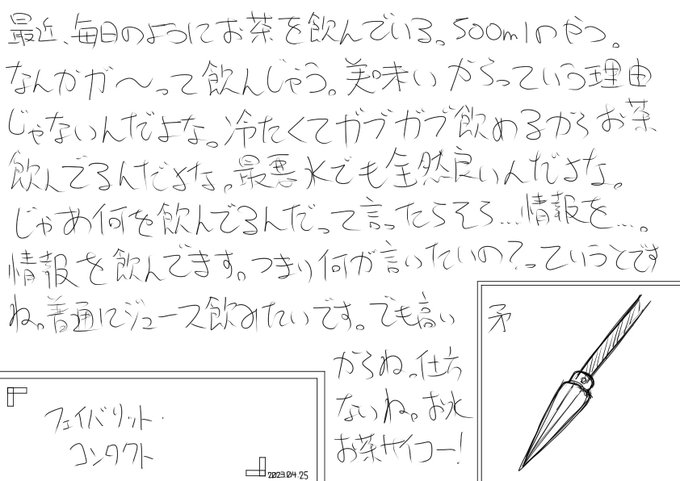 最近、毎日のようにお茶を飲んでいる。500mlのやつ。
なんかガ〜って飲んじゃう。美味いからっていう理由
じゃないんだよな。冷たくてガブガブ飲めるからお茶
飲んでるんだよな。最悪水でも全然良いんだよな。
じゃあ何を飲んでるんだって言ったらそら…情報を…。
情報を飲んでます。つまり何が言いたいの？っていうとです
ね。普通にジュース飲みたいです。でも高い
からね。仕方
ないね。お水
お茶サイコー！
矛
フェイバリット・
コンタクト
2023.04.25